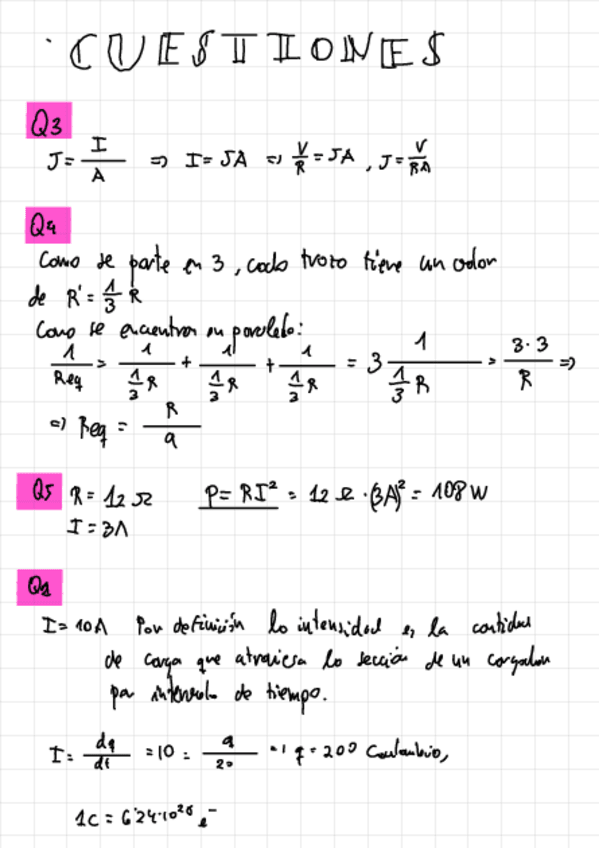 CUESTIONES
Q3
J = I/A ⇒ I = JA ⇒ V/R = JA , J = V/RA
Q4
Como se parte en 3, cada trozo tiene un valor
de R' = 1/3 R
Como se encuentran en paralelo:
1/Req = 1/(1/3 R) + 1/(1/3 R) + 1/(1/3 R) = 3 1/(1/3 R) = 3·3/R ⇒
⇒ Req = R/9
Q5 R = 12 Ω P = RI² = 12 Ω · (3A)² = 108 W
I = 3A
Q1
I = 10A Por definición la intensidad es la cantidad
de carga que atraviesa la sección de un
por intervalo de tiempo.
I = dq/dt = 10 = q/20 ⇒ q = 200 Coulombio,
1C = 6'24·10¹⁸ e⁻